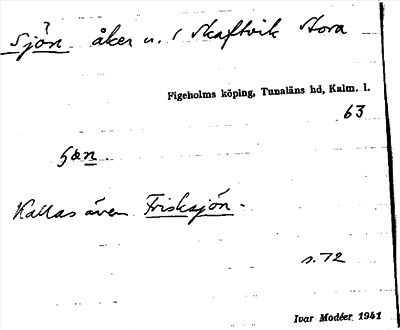 Sjön åker u. / Skaftvik Stora
Figeholms köping, Tunaläns hd, Kalm. l.
63
Kallas även Frisksjön.
s. 72
Ivar Modéer 1941